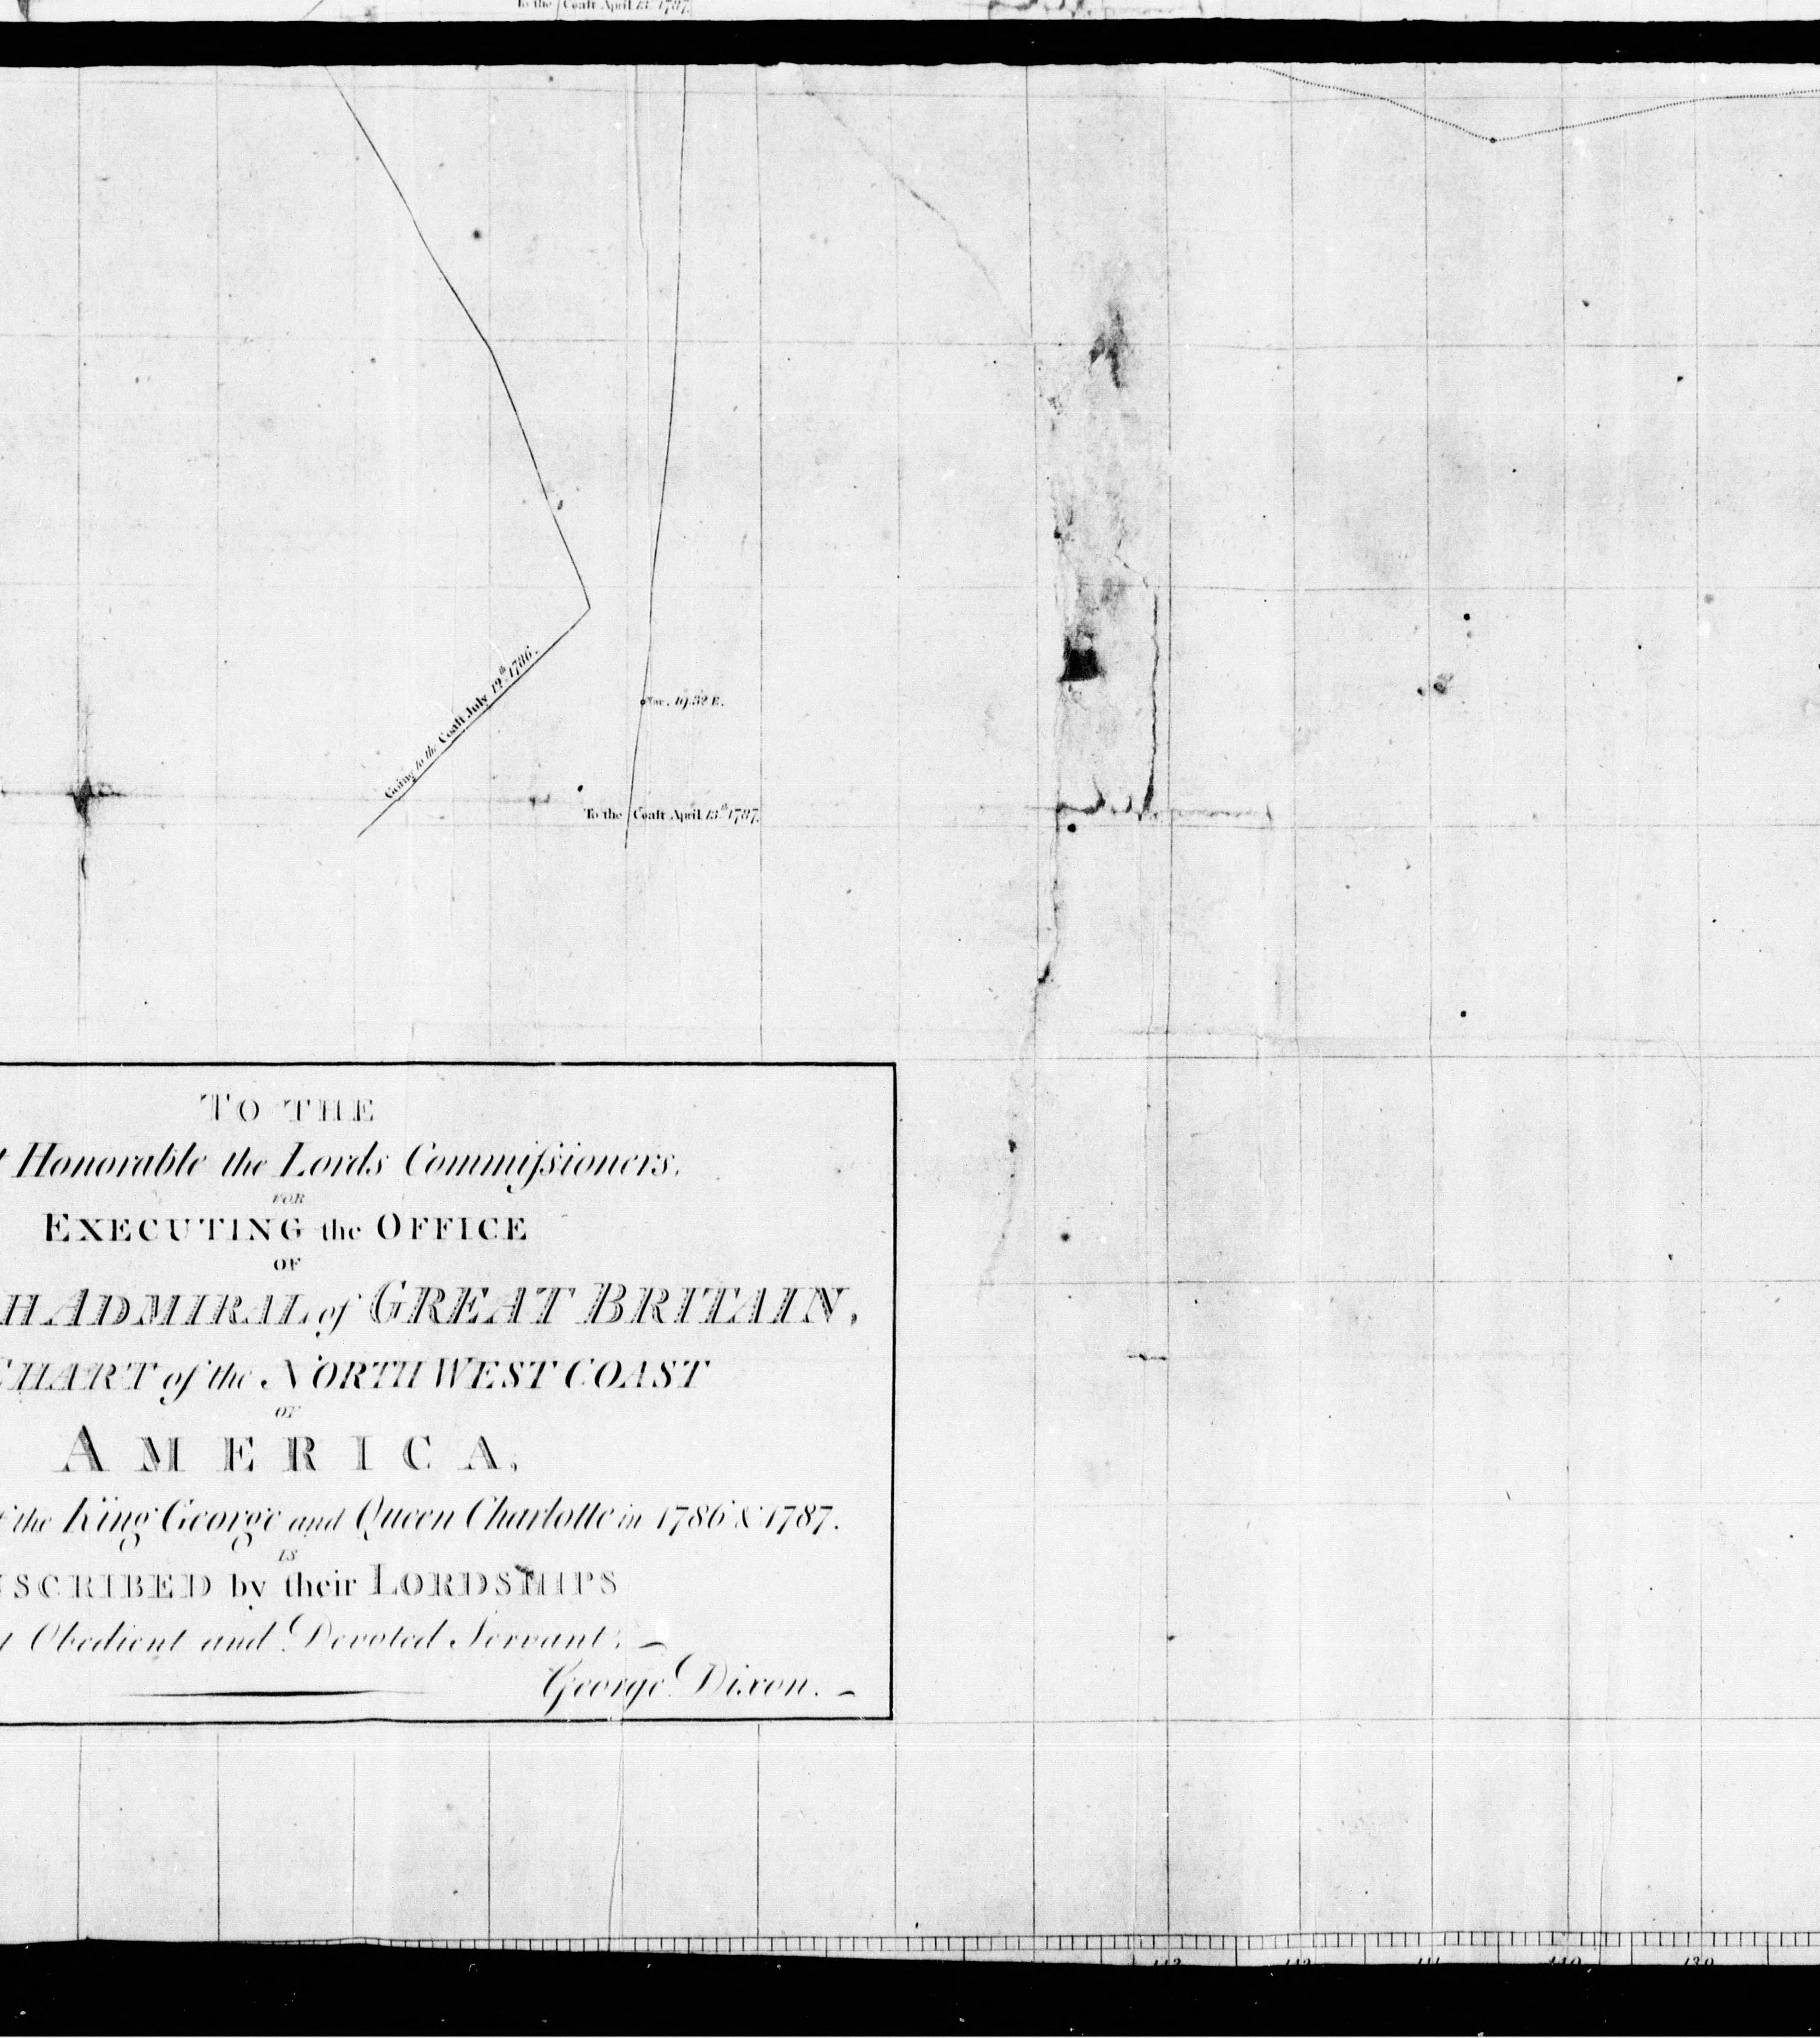 To the Coast April 13th 1787.
Going to the Coast July 12th 1786.
Var. 19.32 E.
To the Coast April 13th 1787.
TO THE
Honorable the Lords Commiſsioners,
FOR
EXECUTING the OFFICE
OF
H ADMIRAL of GREAT BRITAIN,
CHART of the NORTH WEST COAST
OF
AMERICA,
the King George and Queen Charlotte in 1786 & 1787.
IS
SCRIBED by their LORDSHIPS
Obedient and Devoted Servant,
George Dixon.